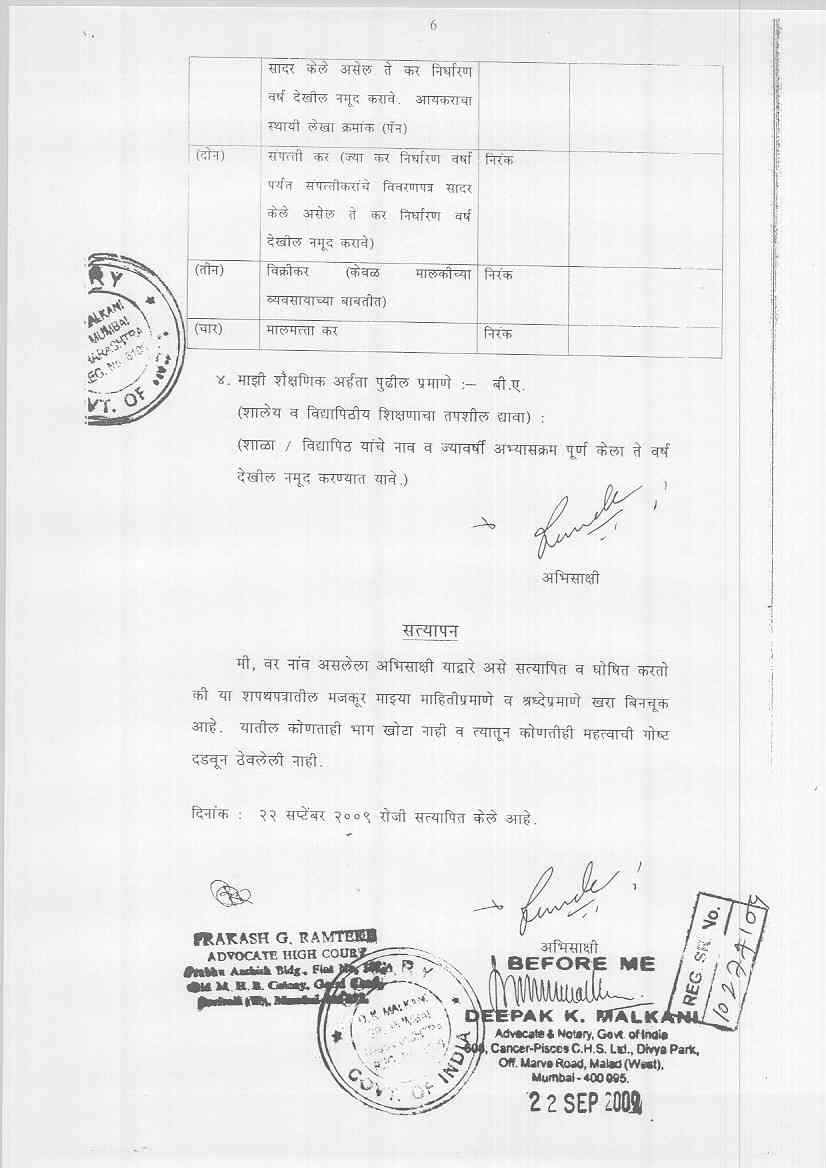 6
सादर केले असेल ते कर निर्धारण
वर्ष देखील नमूद करावे. आयकराचा
स्थायी लेखा क्रमांक (पॅन)
(दोन) संपत्ती कर (ज्या कर निर्धारण वर्षा निरंक
पर्यंत संपत्तीकरांचे विवरणपत्र सादर
केले असेल ते कर निर्धारण वर्ष
देखील नमूद करावे)
(तीन) विक्रीकर (केवळ मालकीच्या निरंक
व्यवसायाच्या बाबतीत)
(चार) मालमत्ता कर निरंक
RY
ALKANI
MUMBAI
ARASHTRA
EG. No.
VT. OF
४. माझी शैक्षणिक अर्हता पुढील प्रमाणे :– बी.ए.
(शालेय व विद्यापिठीय शिक्षणाचा तपशील द्यावा) :
(शाळा / विद्यापिठ यांचे नाव व ज्यावर्षी अभ्यासक्रम पूर्ण केला ते वर्ष
देखील नमूद करण्यात यावे.)
अभिसाक्षी
सत्यापन
मी, वर नांव असलेला अभिसाक्षी याद्वारे असे सत्यापित व घोषित करतो
की या शपथपत्रातील मजकूर माझ्या माहितीप्रमाणे व श्रध्देप्रमाणे खरा बिनचूक
आहे. यातील कोणताही भाग खोटा नाही व त्यातून कोणतीही महत्वाची गोष्ट
दडवून ठेवलेली नाही.
दिनांक : २२ सप्टेंबर २००९ रोजी सत्यापित केले आहे.
अभिसाक्षी
PRAKASH G. RAMTEKE
ADVOCATE HIGH COURT
Bldg., Flat No.
Old M. H. B. Colony,
D.K. MALKANI
GOVT. OF INDIA
BEFORE ME
DEEPAK K. MALKANI
Advocate & Notary, Govt. of India
Cancer-Pisces C.H.S. Ltd., Divya Park,
Off. Marve Road, Malad (West),
Mumbai - 400 095.
22 SEP 2009
REG. SR. No.